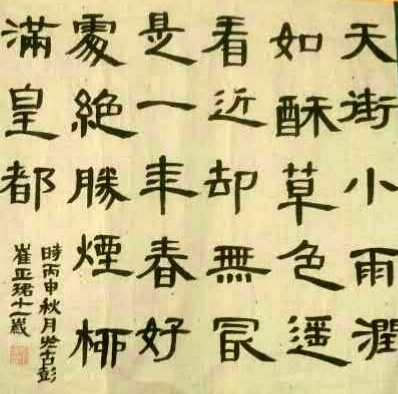 天街小雨潤
如酥草色遥
看近却無冣
是一年春好
處絶勝煙柳
滿皇都
時丙申秋月於古彭
崔亚珺十一歲